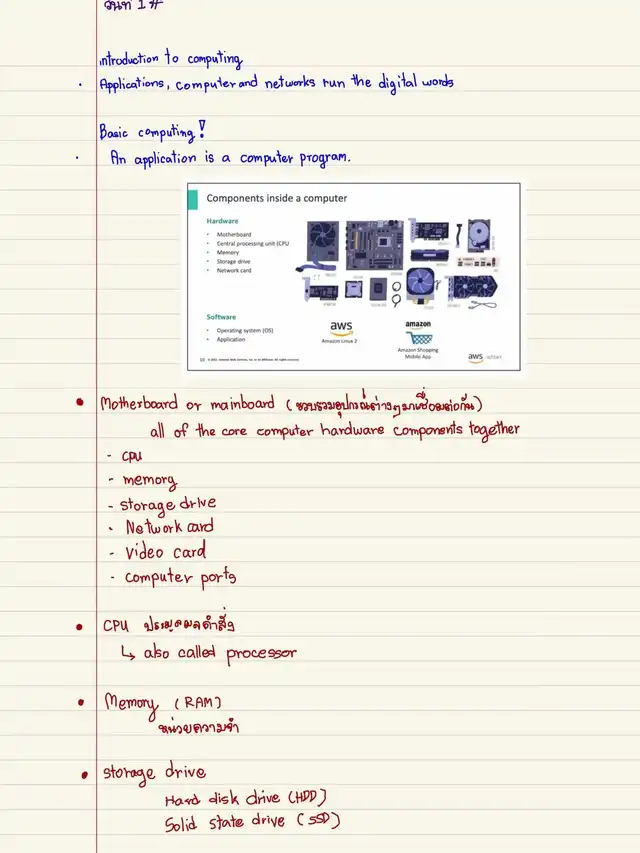 วันที่ 1 #
introduction to computing
Applications, computer and networks run the digital words
Basic computing!
An application is a computer program.
Components inside a computer
Hardware
• Motherboard
• Central processing unit (CPU
• Memory
• Storage drive
• Network card
Software
• Operating system (OS)
• Application
aws
Amazon Linux 2
amazon
Amazon Shopping
Mobile App
aws
• Motherboard or mainboard (รวบรวมอุปกรณ์ต่างๆมาเชื่อมต่อกัน)
all of the core computer hardware components together
- CPU
- memory
- storage drive
- Network card
- video card
- computer ports
• CPU ประมวลผลคำสั่ง
↳ also called processor
• Memory (RAM)
หน่วยความจำ
• storage drive
Hard disk drive (HDD)
Solid state drive (SSD)